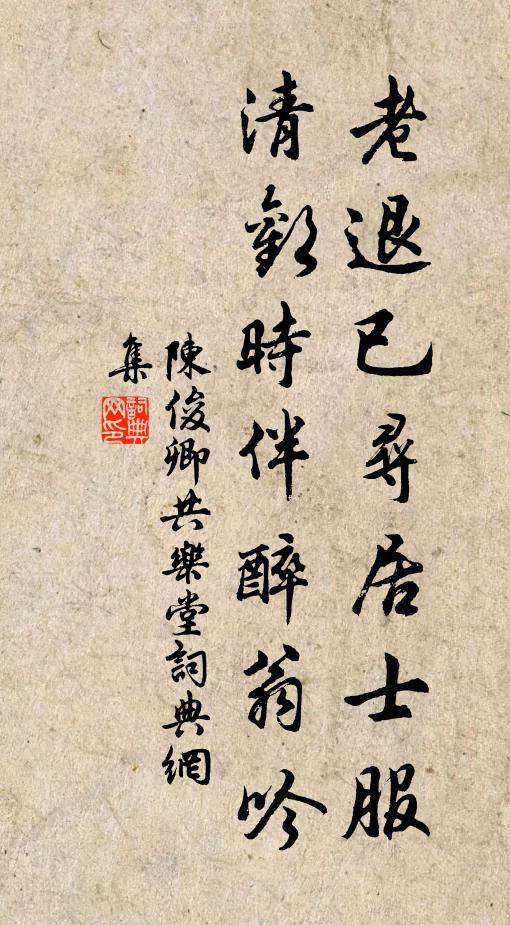 老退已尋居士服
清歡時伴醉翁吟
陳俊卿共樂堂詞典網
集
詞典網印